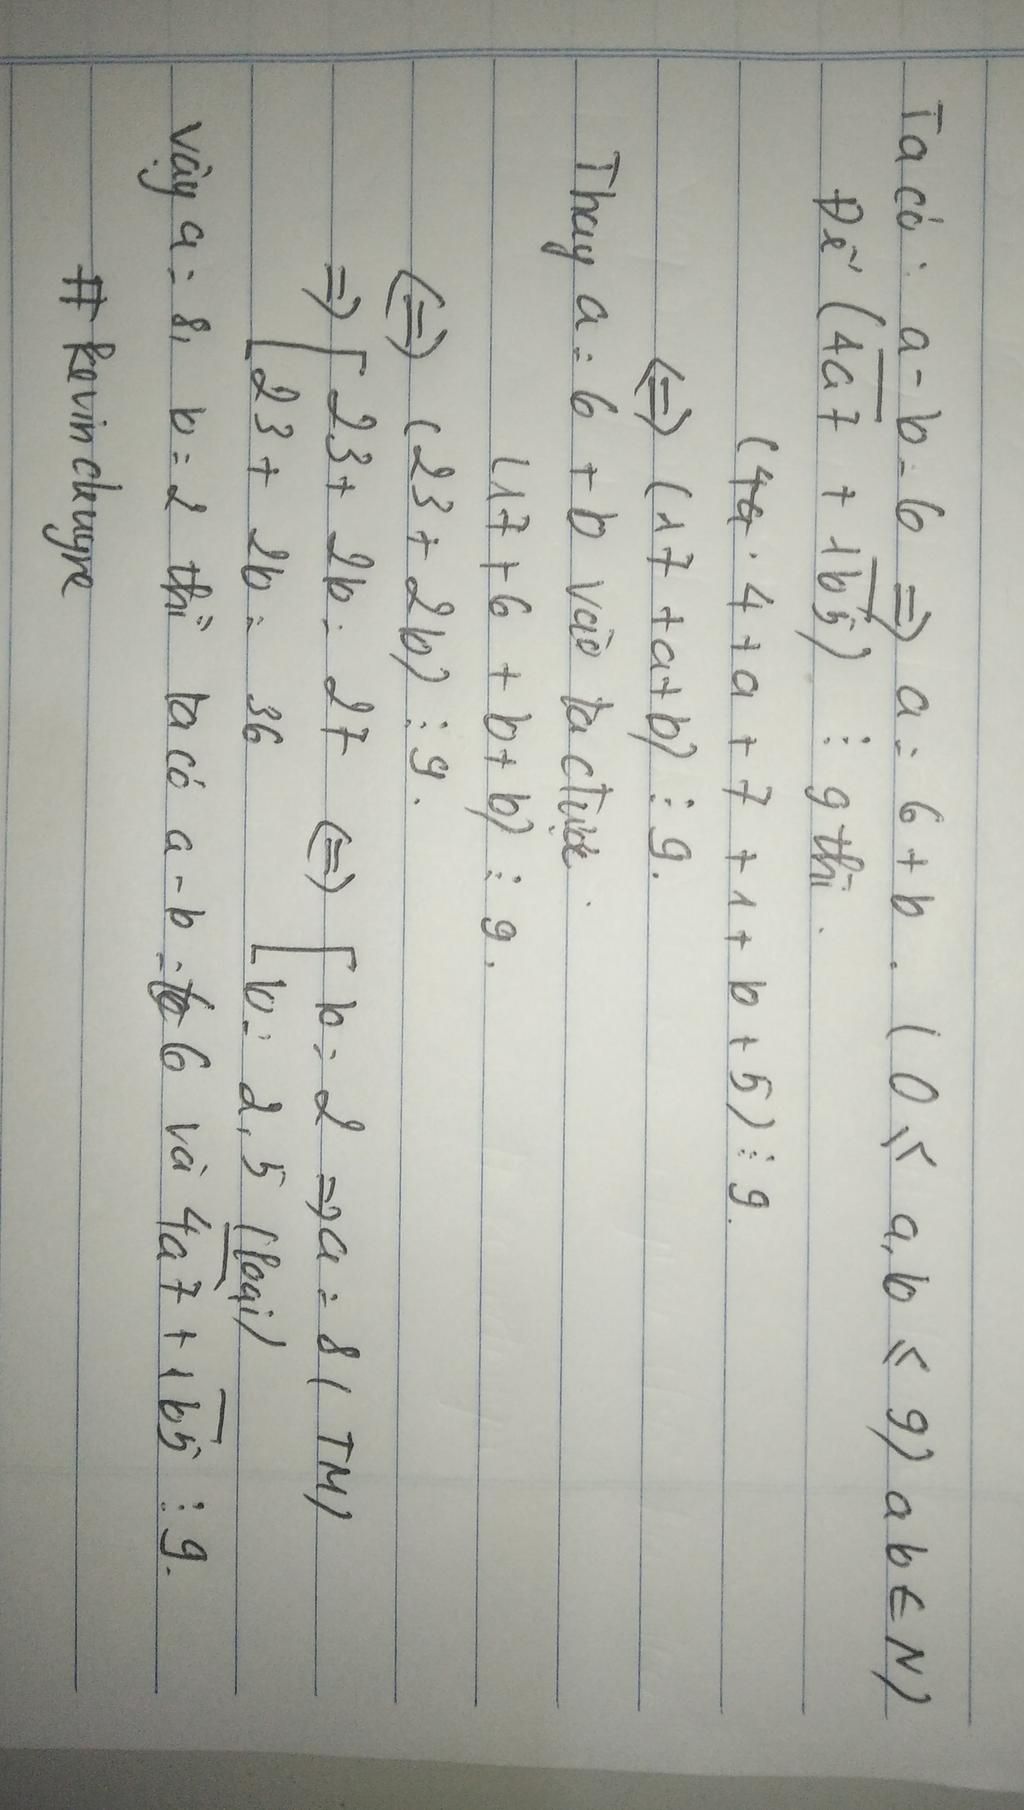 Ta có: a - b = 6 => a = 6 + b. (0 ≤ a, b ≤ 9) a b ∈ N)
Để (4a7 + 1b5) ⋮ 9 thì.
(4 + a + 7 + 1 + b + 5) ⋮ 9.
<=> (17 + a + b) ⋮ 9.
Thay a = 6 + b vào ta được.
(17 + 6 + b + b) ⋮ 9.
<=> (23 + 2b) ⋮ 9.
=> [ 23 + 2b = 27 <=> [ b = 2 => a = 8 (TM)
[ 23 + 2b = 36 [ b = 2,5 (loại)
Vậy a = 8, b = 2 thì ta có a - b = 6 và 4a7 + 1b5 ⋮ 9.